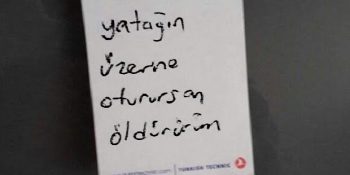 yatağın
üzerne
oturursan
öldürürüm
TURKISH TECHNIC